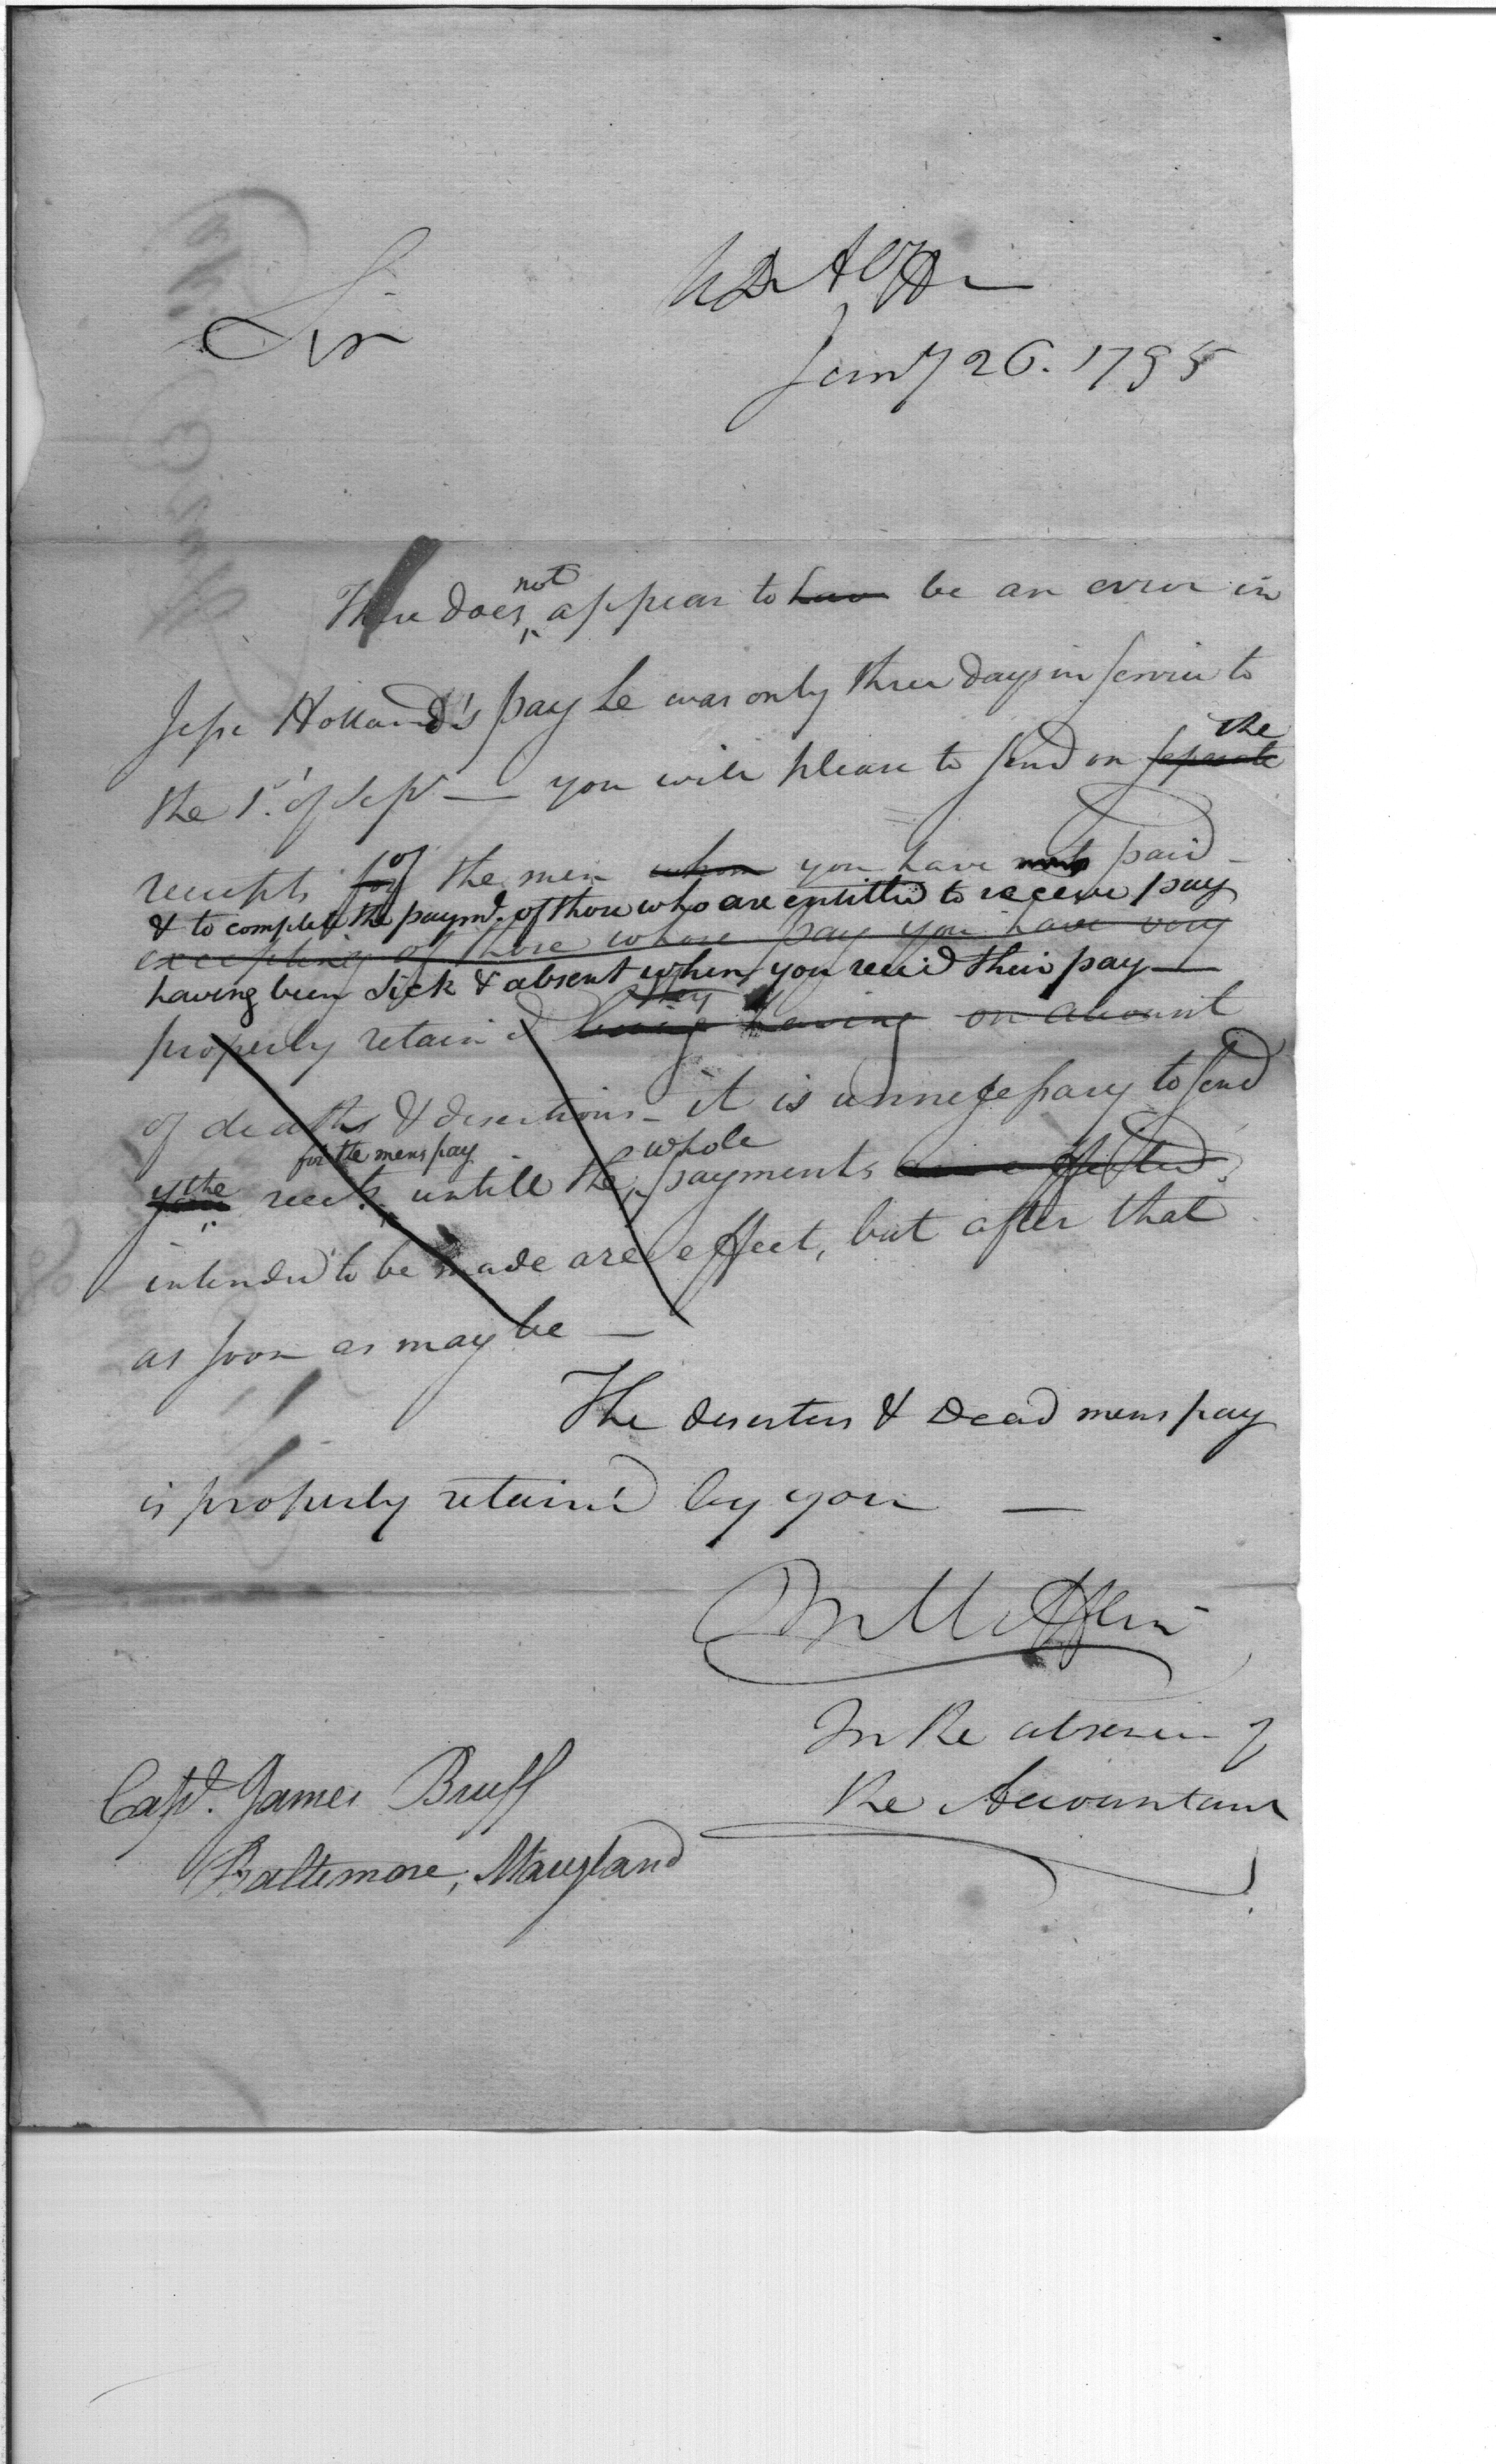 W D A Off
Sir
Jany 26. 1795
There does not appear to have be an error in
Jesse Holland's pay he was only three days in service to
the 1st of Sept — you will please to send on seperate the
receipts for of the men whom you have paid –
& to complete the paymt. of those who are entitled to receive pay
excepting of those whose pay you have very
having been sick & absent when you recd their pay —
properly retain'd they being having on account
of deaths & desertions – it is unnecessary to send
your the recets. for the mens pay untill the whole payments are effected
intended to be made are effect, but after that
as soon as may be —
The deserters & Dead mens pay
is properly retain'd by you —
Mifflin
In the absence of
the Accountant
Capt. James Bruff
Baltimore, Maryland